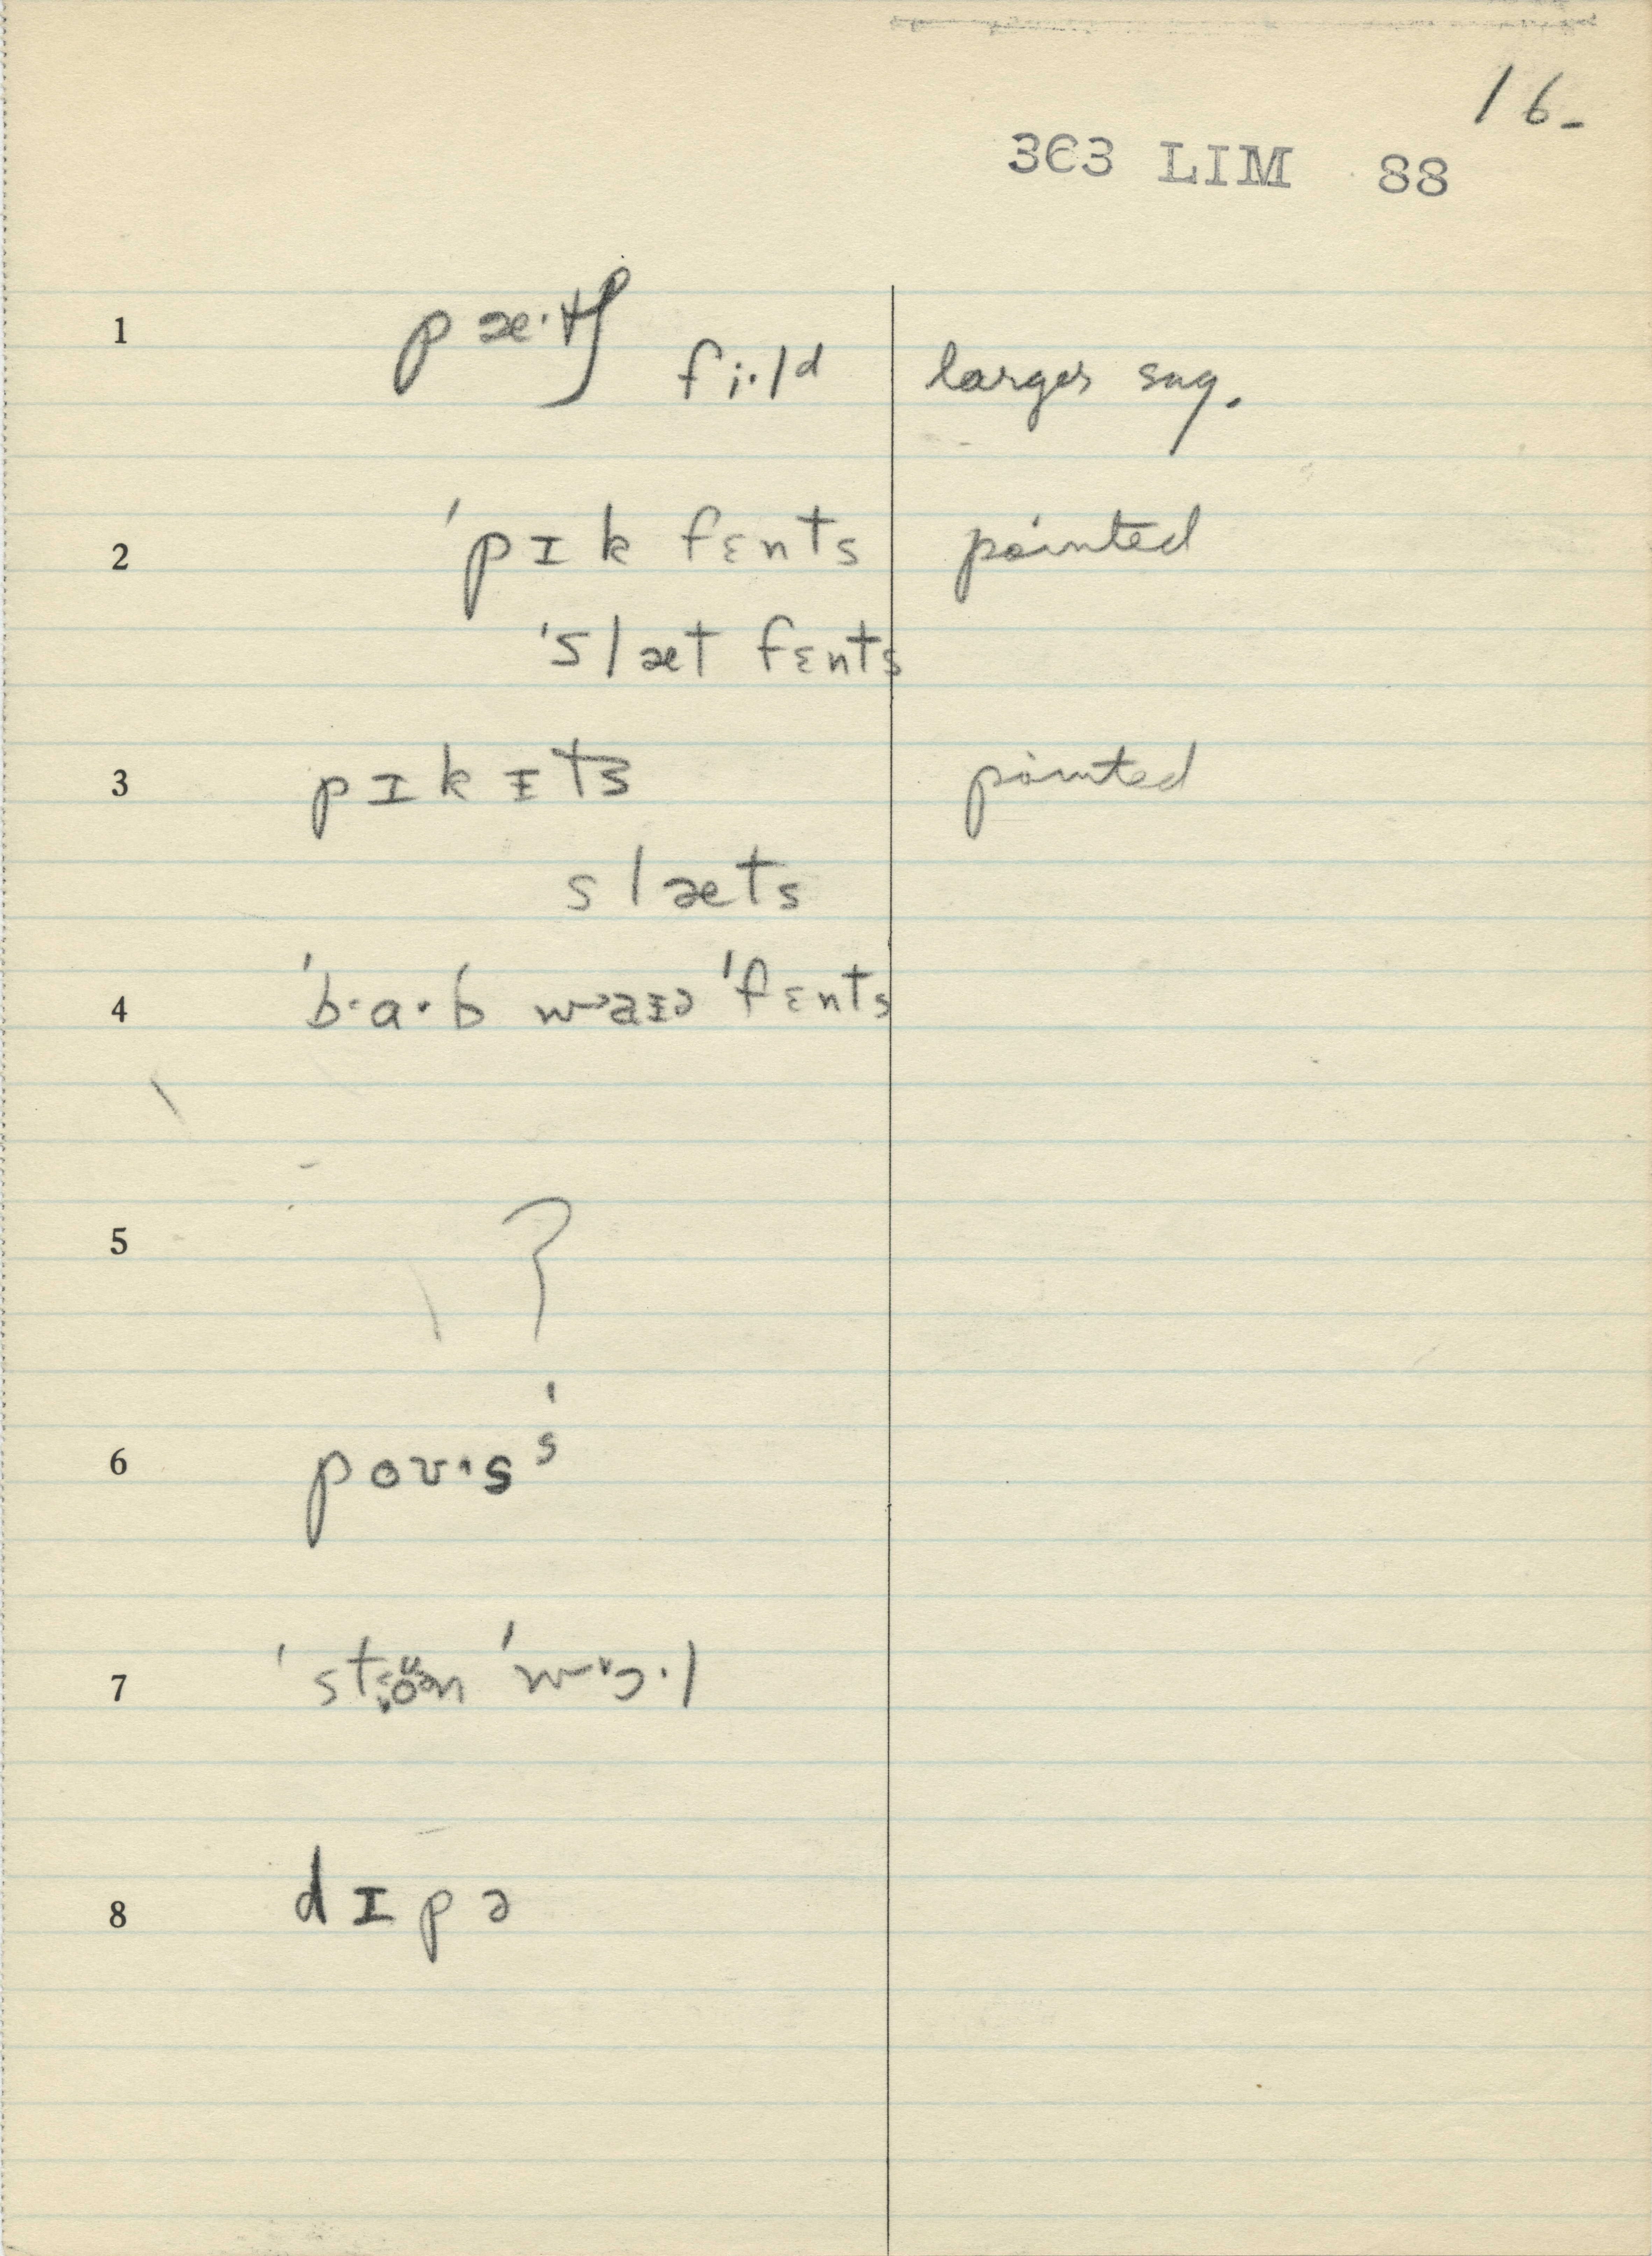 16-
363 LIM 88
1 pæ·tʃ fi·lᵈ larger sug.
2 'pɪk fɛnts pointed
'slæt fɛnts
3 pɪkɪts pointed
slæts
4 'b·a·b waɪə 'fɛnts
5 ?
6 poʊ·sˢ'
7 'stoʊən 'wɔ·l
8 dɪpə